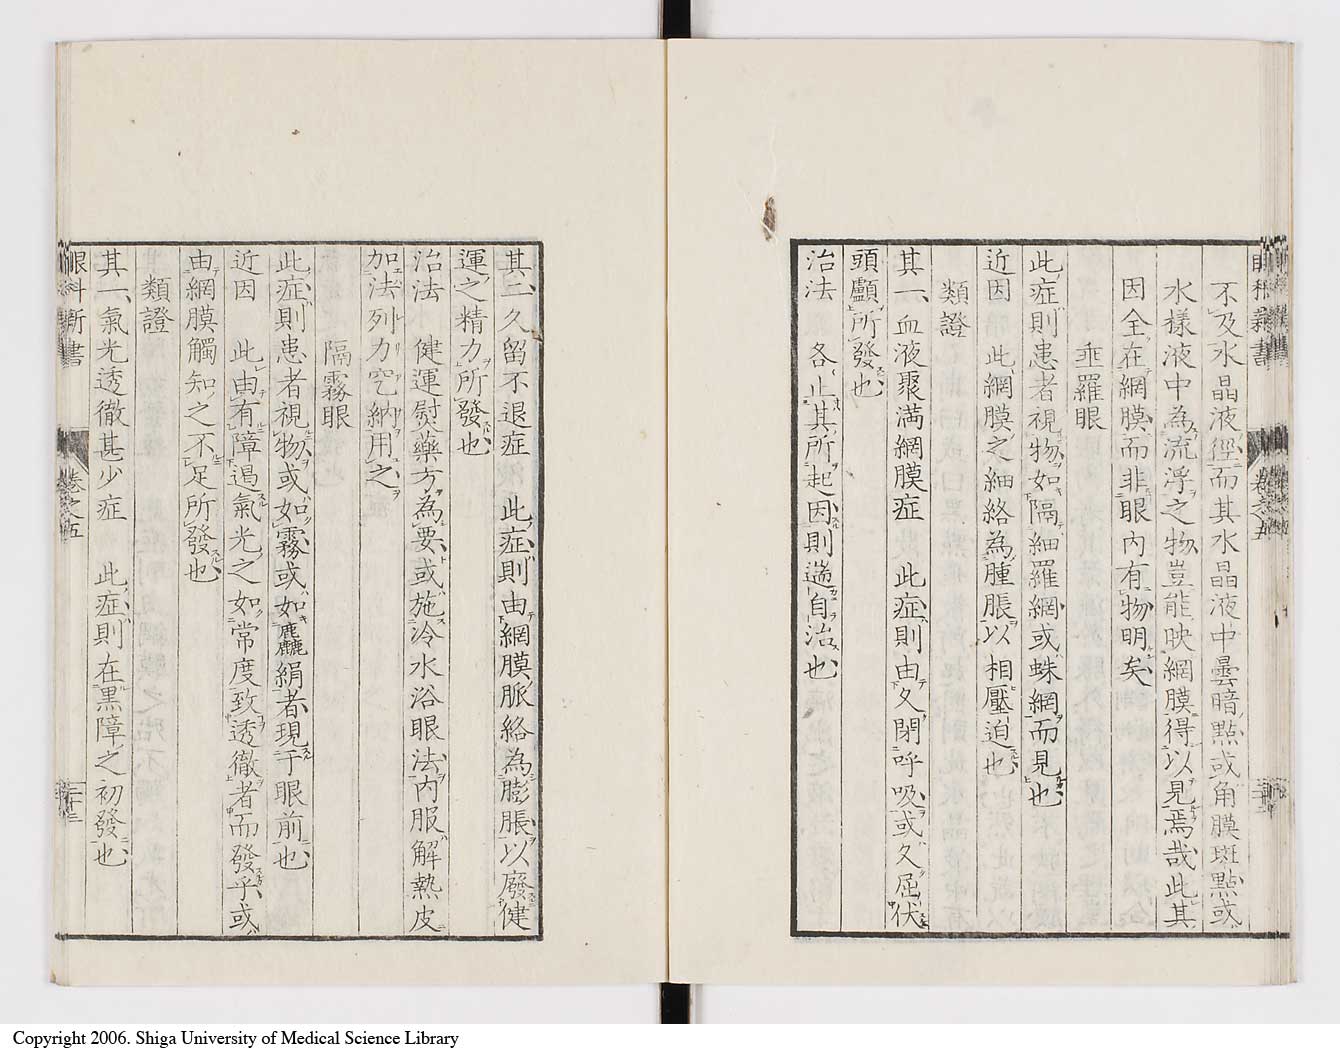 不及水晶液徑而其水晶液中曇暗點或角膜斑點或
水樣液中為流浮之物豈能映網膜得以見焉哉此其
因全在網膜而非眼內有物明矣
乖羅眼
此症則患者視物如隔細羅網或蛛網而見也
近因 此網膜之細絡為腫脹以相壓迫也
類證
其一血液聚滿網膜症 此症則由久閉呼吸或久屈伏
頭顱所發也
治法 各止其所起因則遄自治也
其二久留不退症 此症則由網膜脈絡為膨脹以廢健
運之精力所發也
治法 健運熨藥方為要或施冷水浴眼法內服解熱皮
加法列力窀納用之
隔霧眼
此症則患者視物或如霧或如麤絹者現于眼前也
近因 此由有障遏氣光之如常度致透徹者而發乎或
由網膜觸知之不足所發也
類證
其一氣光透徹甚少症 此症則在黒障之初發也
眼科新書 卷之五 二十三
Copyright 2006. Shiga University of Medical Science Library